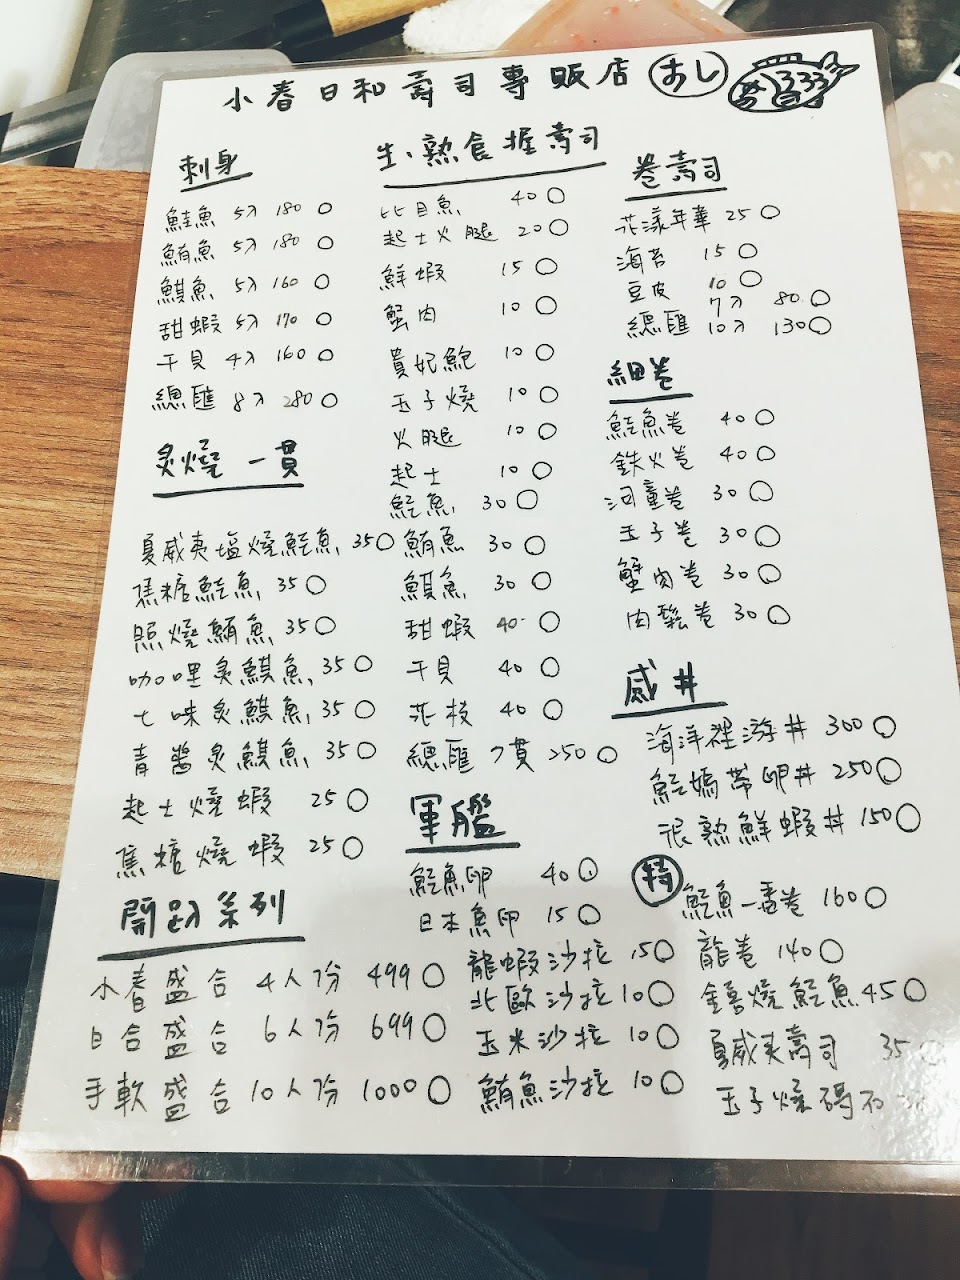 小春日和壽司專販店 おし
刺身
鮭魚 5入 180
鮪魚 5入 180
鯕魚 5入 160
甜蝦 5入 170
干貝 4入 160
總匯 8入 280
炙燒一貫
夏威夷塩燒鮭魚 35
焦糖鮭魚 35
照燒鮪魚 35
咖哩炙鯕魚 35
七味炙鯕魚 35
青醬炙鯕魚 35
起士燒蝦 25
焦糖燒蝦 25
開趴系列
小春盛合 4人份 499
日合盛合 6人份 699
手軟盛合 10人份 1000
生、熟食握壽司
比目魚 40
起士火腿 20
鮮蝦 15
蟹肉 10
貴妃鮑 10
玉子燒 10
火腿 10
起士 10
鮭魚 30
鮪魚 30
鯕魚 30
甜蝦 40
干貝 40
花枝 40
總匯 7貫 250
軍艦
鮭魚卵 40
日本魚卵 15
龍蝦沙拉 15
北歐沙拉 10
玉米沙拉 10
鮪魚沙拉 10
卷壽司
花漾年華 25
海苔 15
豆皮 10
總匯 7入 80
10入 130
細卷
鮭魚卷 40
鉄火卷 40
河童卷 30
玉子卷 30
蟹肉卷 30
肉鬆卷 30
盛丼
海洋裡游丼 300
鮭媽帶卵丼 250
很熟鮮蝦丼 150
特
鮭魚一番卷 160
龍卷 140
鹽燒鮭魚 45
夏威夷壽司 35
玉子燒磚